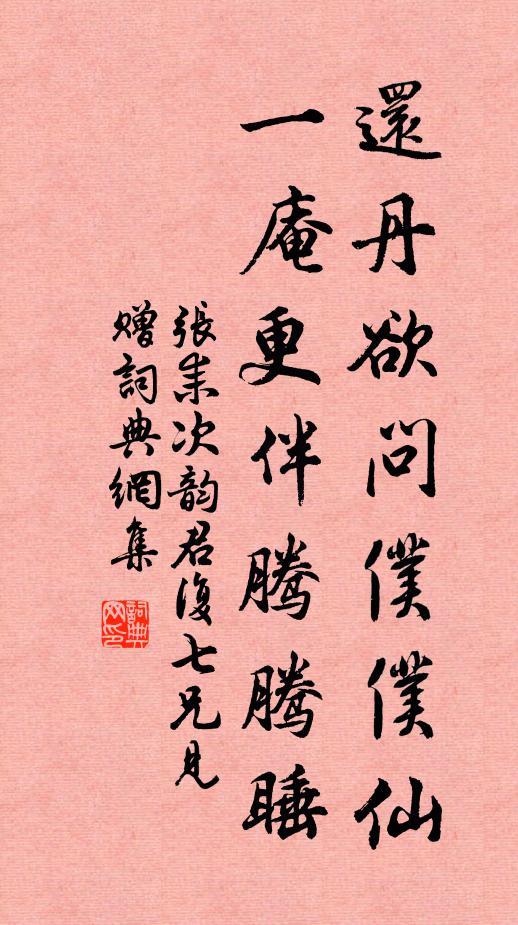 還丹欲問僕僕仙
一庵更伴騰騰睡
張耒次韵君復七兄見
贈詞典網集
詞典
网印